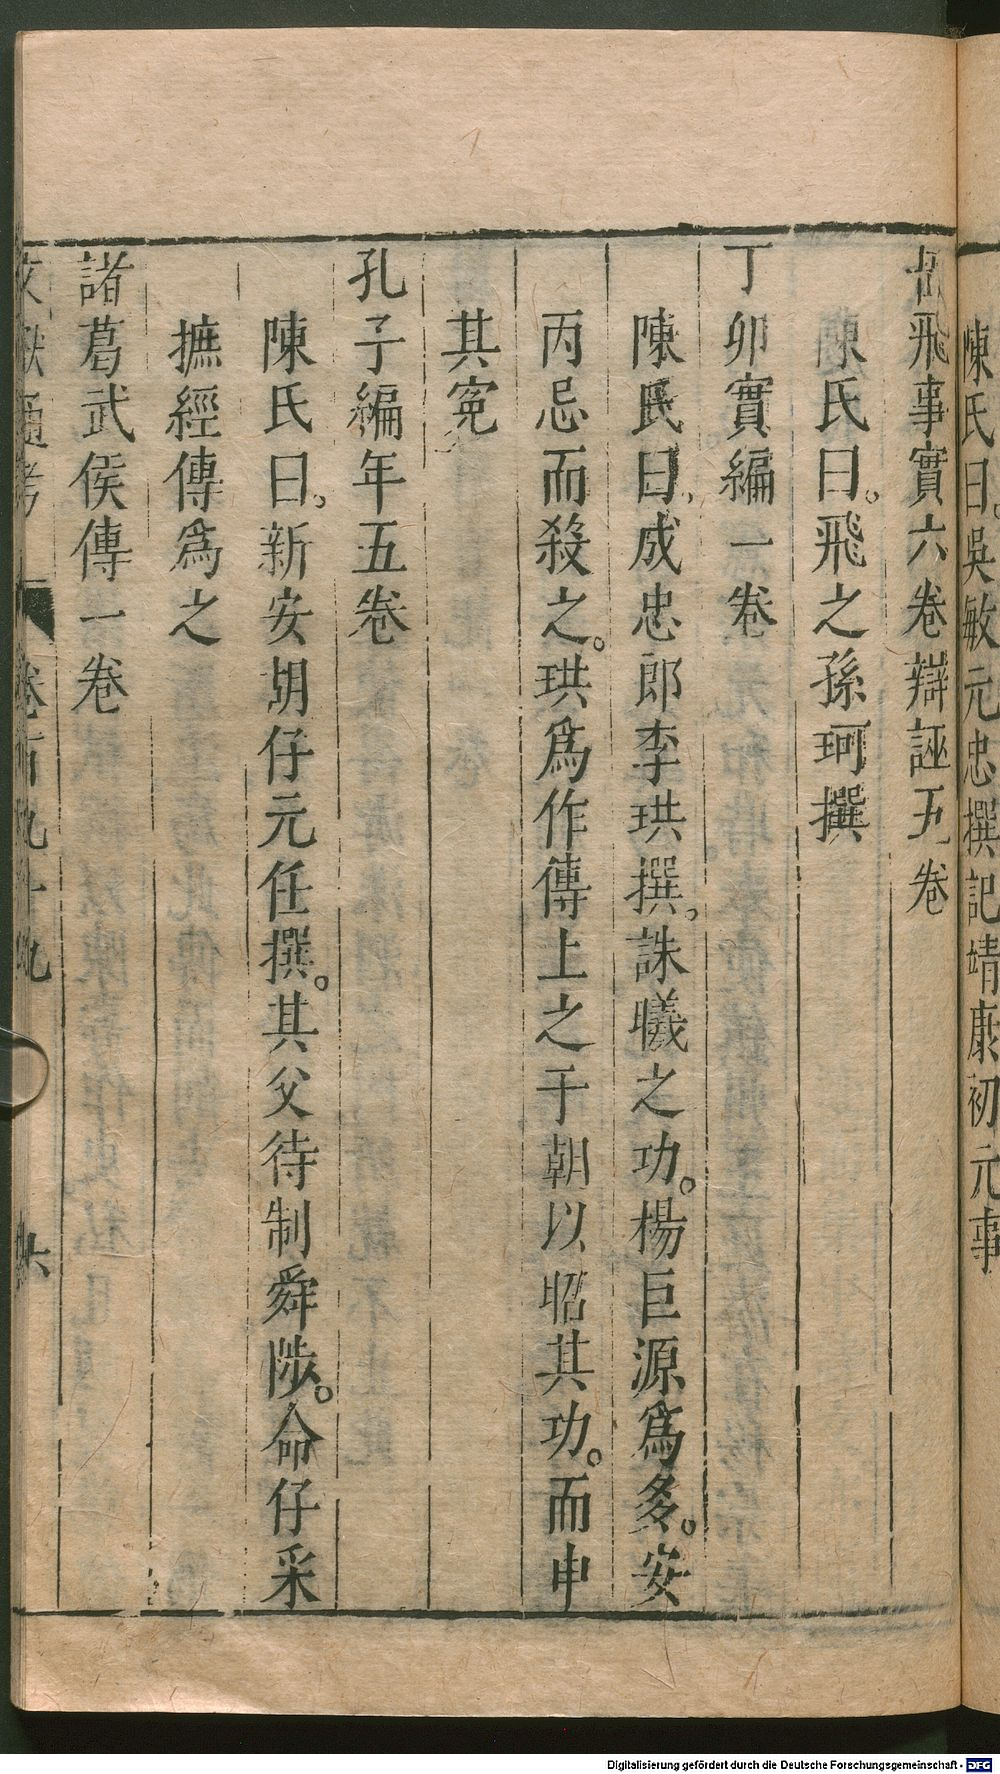 陳氏曰。吳敏元忠撰記靖康初元事
岳飛事實六卷辯誣五卷
陳氏曰。飛之孫珂撰
丁卯實編一卷
陳氏曰。成忠郎李珙撰。誅曦之功。楊巨源爲多。安
丙忌而殺之。珙爲作傳上之于朝以昭其功。而申
其寃
孔子編年五卷
陳氏曰。新安胡仔元任撰。其父待制舜陟。命仔采
摭經傳爲之
諸葛武侯傳一卷
文獻通考 卷百九十九 六
Digitalisierung gefördert durch die Deutsche Forschungsgemeinschaft - DFG